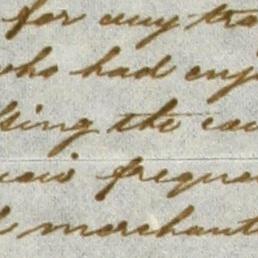 for any tra
who had enj
sing the cou
frequen
merchant